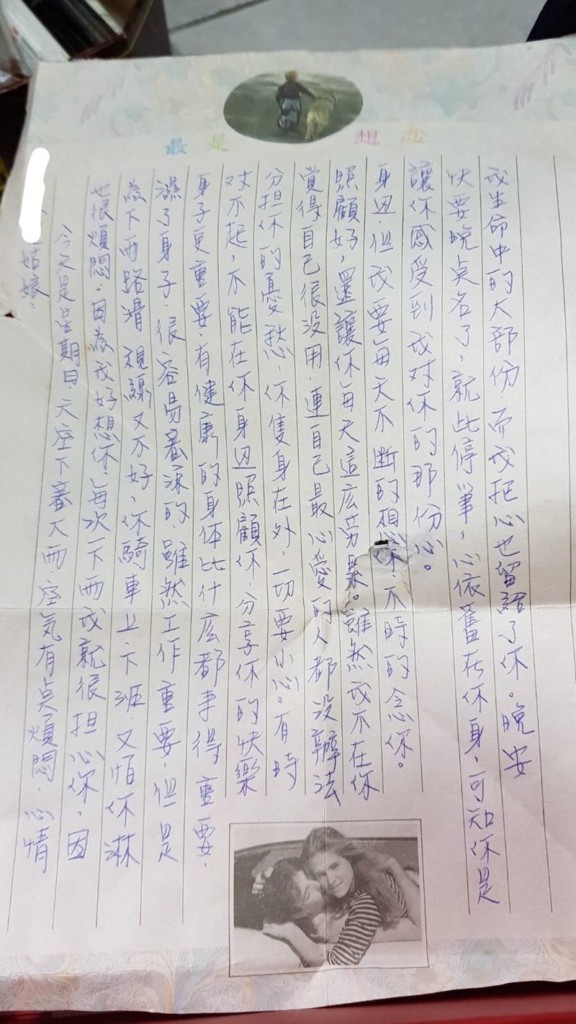 最是想念
姑娘:
今天是星期日天空下著大雨空氣有点煩悶,心情
也很煩悶,因為我好想你,每次一下雨我就很担心你,因
為下雨路滑視線又不好,你騎車上下班,又怕你淋
濕了身子,很容易著涼的,雖然工作重要,但是
身子更重要,有健康的身体比什麼都事得重要,
对不起,不能在你身边照顧你,分享你的快樂
分担你的憂愁,你隻身在外,一切要小心。有時
覺得自己很没用,連自己最心愛的人都没辦法
照顧好,還讓你每天這麼勞累。雖然我不在你
身边,但我要每天不断的想你,不時的念你。
讓你感受到我对你的那份心。
快要晚点名了,就此停筆,心依舊在你身,可知你是
我生命中的大部份,而我把心也留給了你。晚安